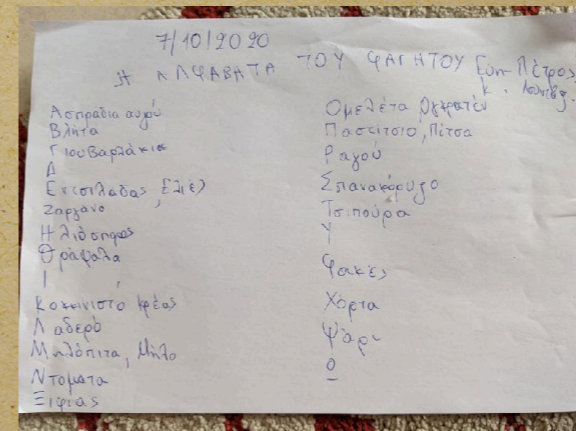 7/10/2020
Η ΑΛΦΑΒΑΤΑ ΤΟΥ ΦΑΓΗΤΟΥ Πέτρος,
κ.
Ασπράδια αυγού
Βλήτα
Γιουβαρλάκια
Δ
Εντσιλάδας, Ελιές
Ζαργάνα
Ηλιόσπορος
Θράψαλα
Ι
Κοκκινιστό κρέας
Λαδερό
Μηλόπιτα, Μήλο
Ντομάτα
Ξιφίας
Ομελέτα, Ογκρατέν
Παστίτσιο, Πίτσα
Ραγού
Σπανακόρυζο
Τσιπούρα
Υ
Φακές
Χόρτα
Ψάρι
Ο